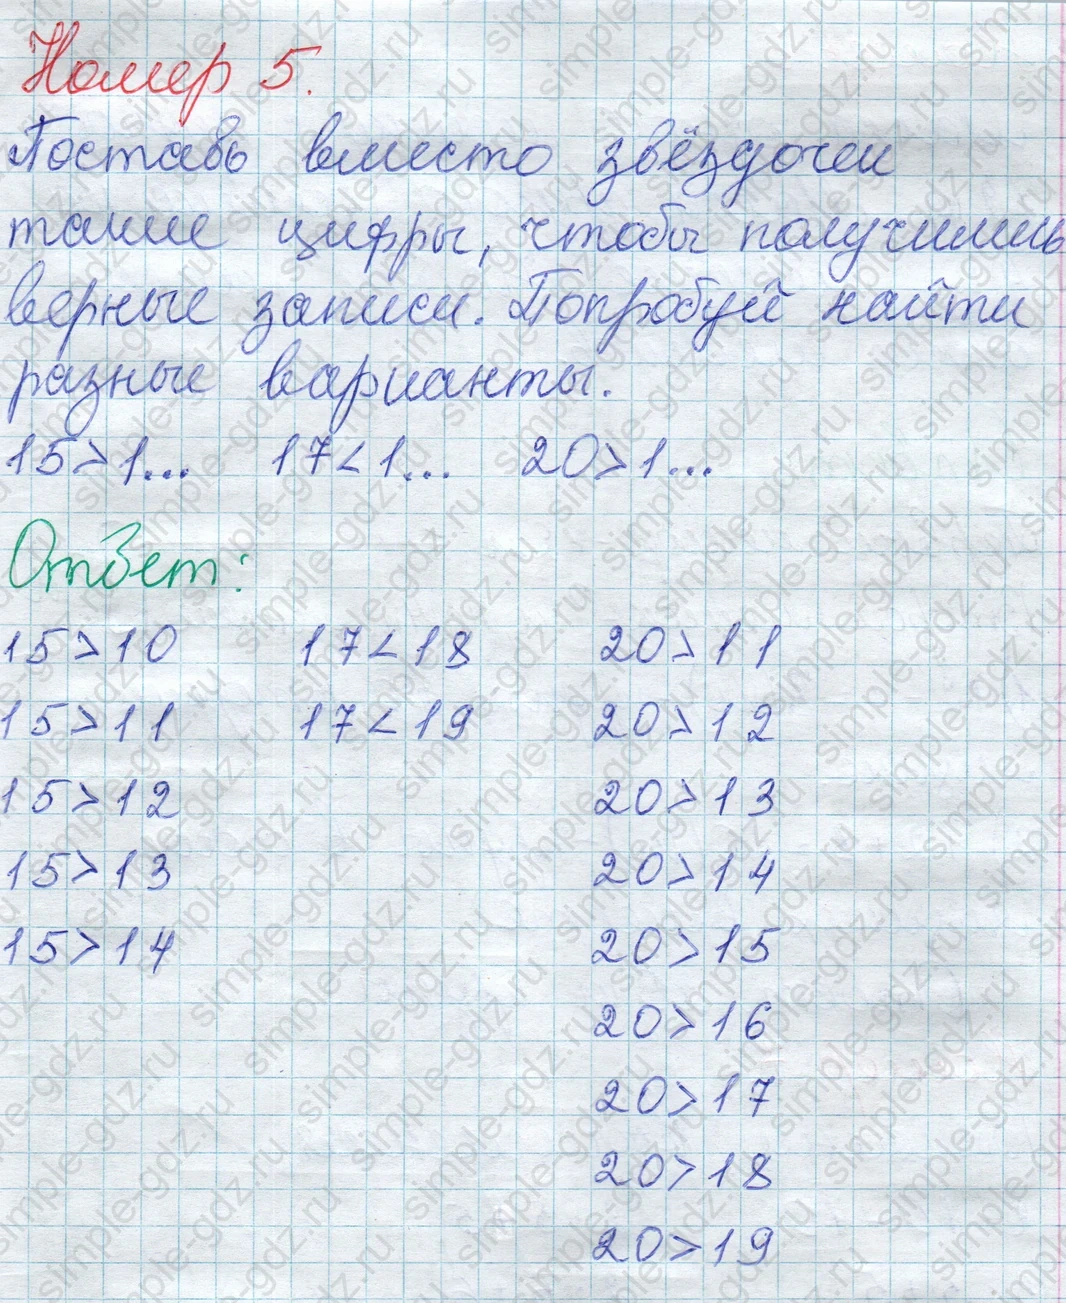 Номер 5.
Поставь вместо звёздочек
такие цифры, чтобы получились
верные записи. Попробуй найти
разные варианты.
15>1... 17<1... 20>1...
Ответ:
15>10 17<18 20>11
15>11 17<19 20>12
15>12 20>13
15>13 20>14
15>14 20>15
20>16
20>17
20>18
20>19
simple-gdz.ru